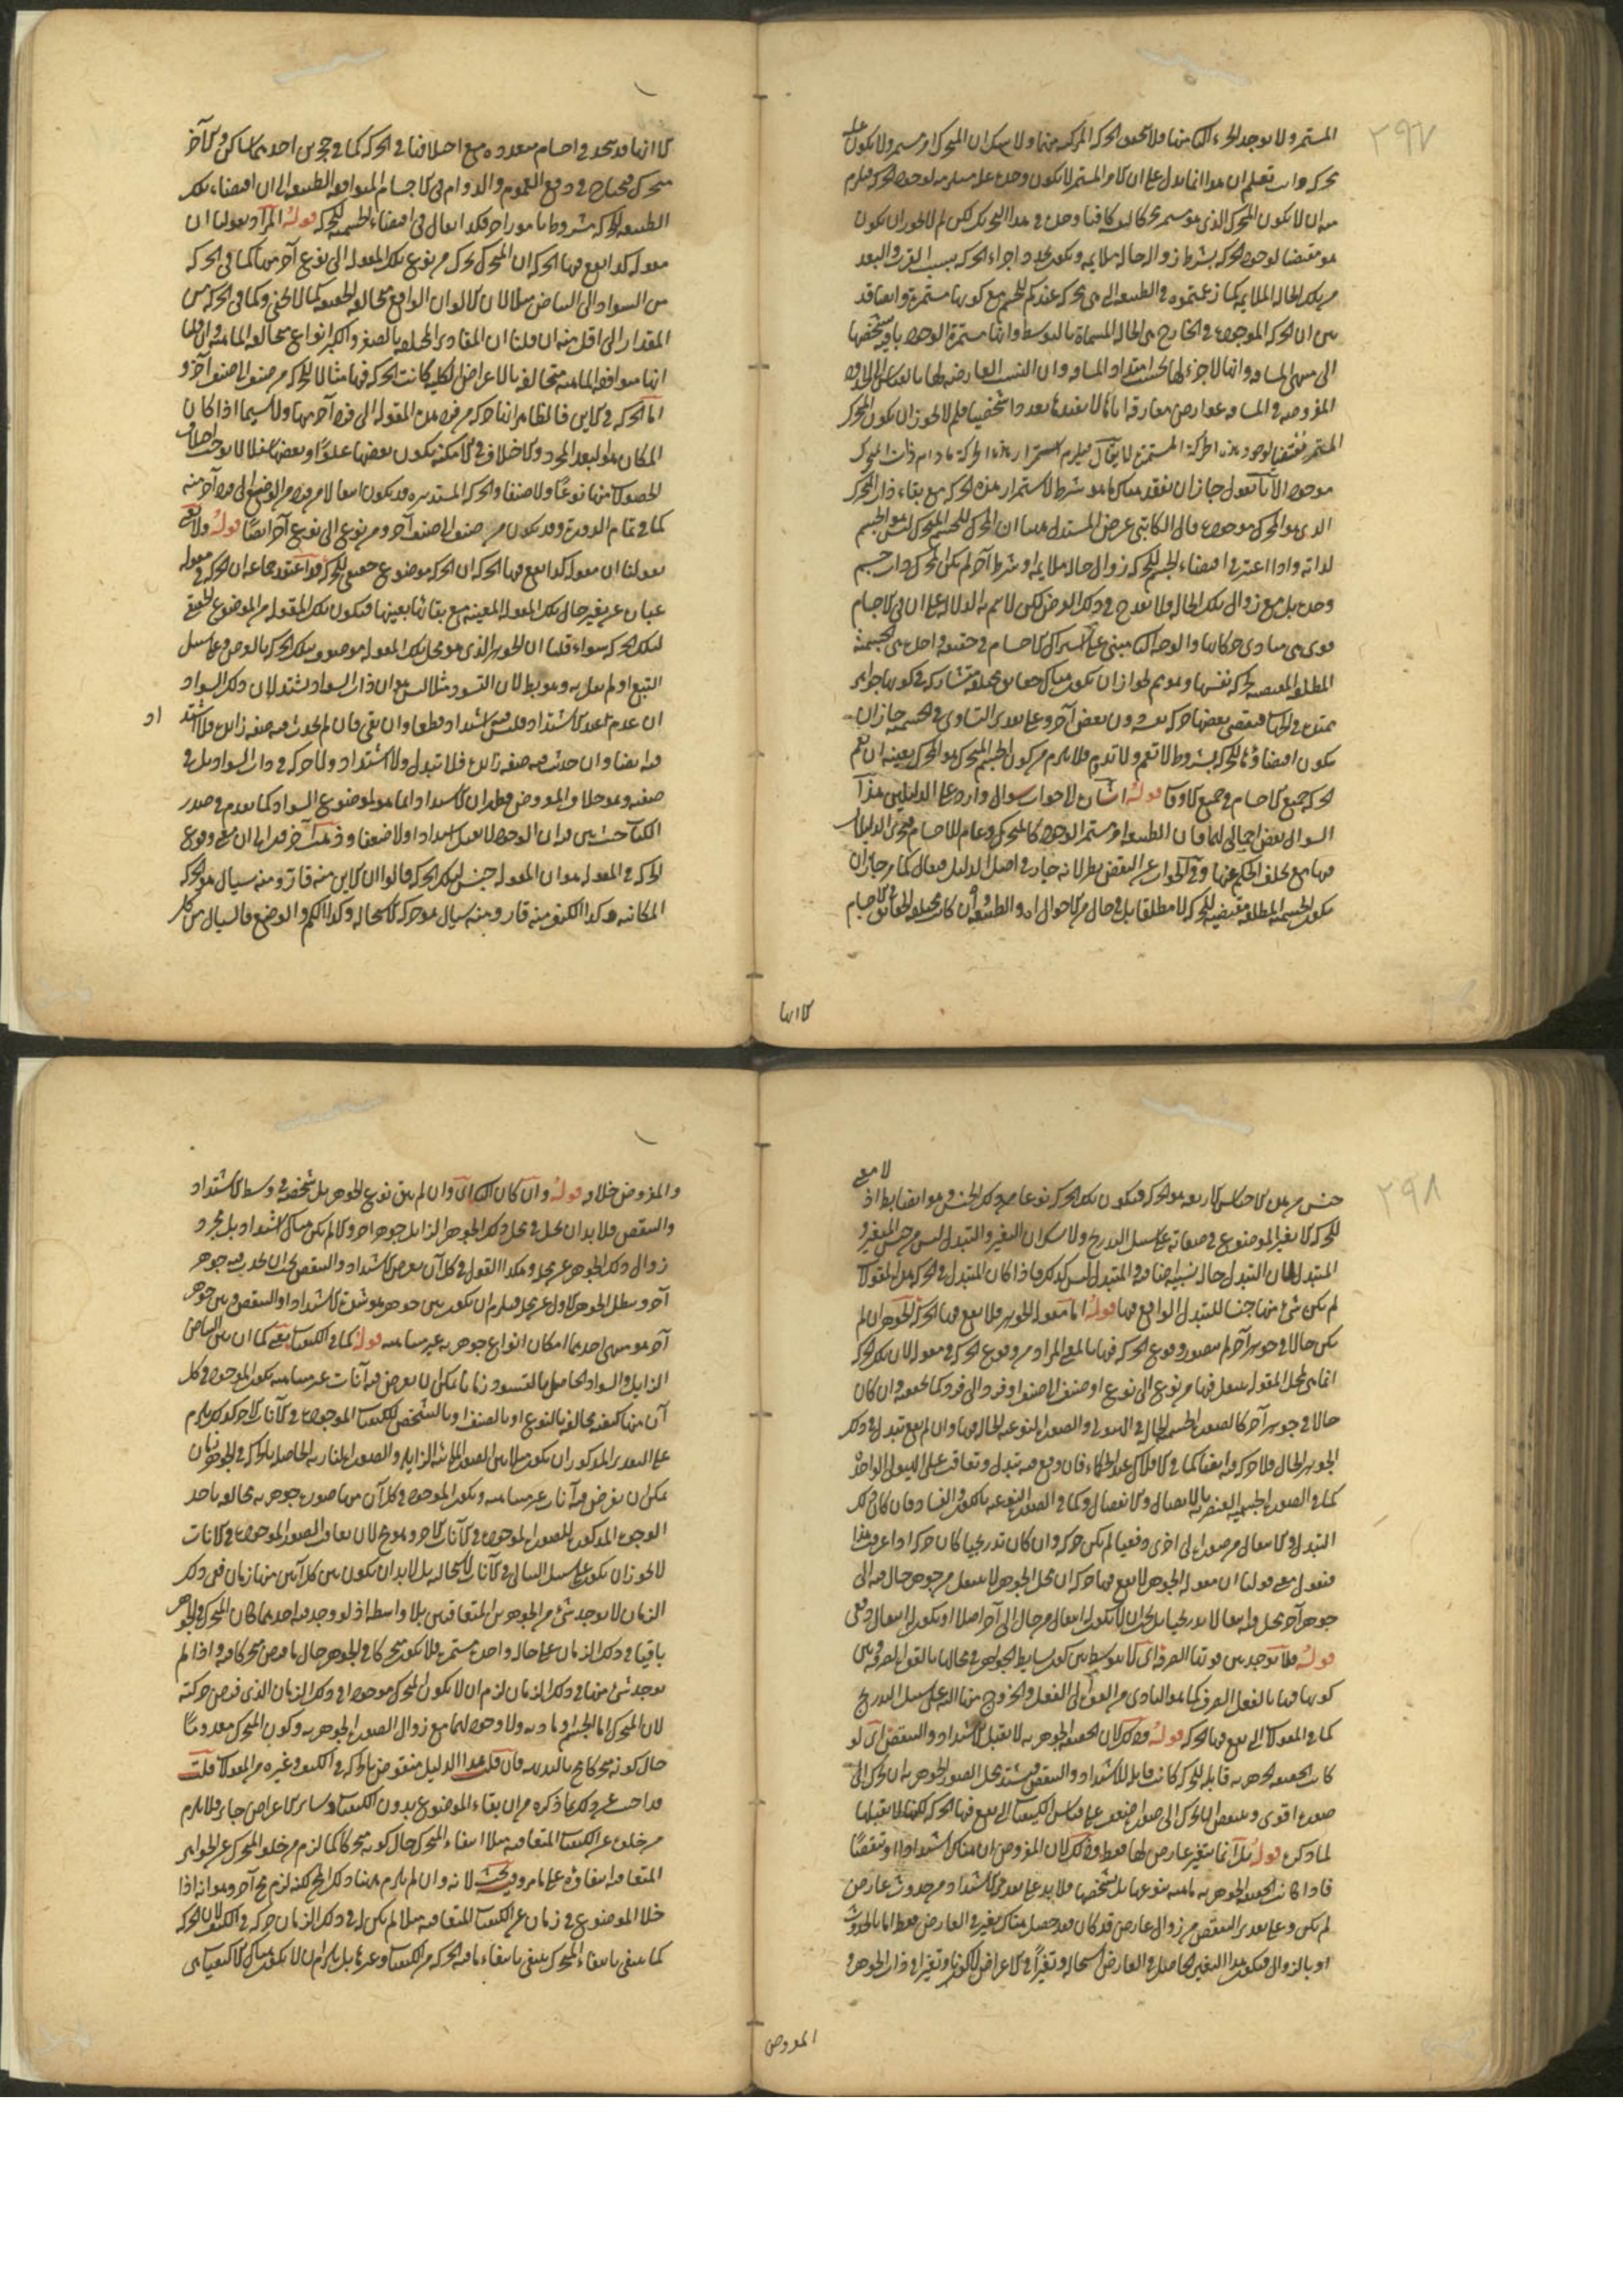 ٢٩٧
المستمر ولا يوجد الجزء الثانى منها فلا تتحقق الحركة المركبة منها ولا يمكن ان المتحرك امر مستمر ولا يكون علة
تحركه وانت تعلم ان هذا انما يدل على ان الامر المستمر لا يكون وحده علة مستلزمة لوجود الحركة فيلزم
منه ان لا يكون المتحرك الذى هو مستمر محركا لوكافيا وحده فى هذا التحريك لكن لم لا يجوز ان يكون
هو مقتضيا لوجود الحركة بشرط زوال حالة ملايمة ويكون تجدد اجزاء الحركة بسبب القرب والبعد
من تلك الحالة الملايمة كما زعمتموه فى الطبيعة التى هى محركة عندكم للجسم مع كونها مستمرة وايضا قد
بين ان الحركة الموجودة فى الخارج هى الحالة المسماة بالتوسط وانها مستمرة الوجود باقية بشخصها
الى منتهى المسافة وانها لا جزء لها بحسب امتداد المسافة وان النسب العارضة لها بالقياس الى الحدود
المفروضة فى المسافة عوارض مفارقة اياها لا يفيدها تعددا شخصيا فلم لا يجوز ان يكون المتحرك
المستمر مقتضيا لوجود هذه الحركة المستمرة لا يقال فيلزم استمرار هذه الحركة مادام ذات المتحرك
موجودا لانا نقول جاز ان يفقد هناك ما هو شرط لاستمرار هذه الحركة مع بقاء ذات المتحرك
الذى هو المحرك موجودة قال الكاتبى غرض المستدل ههنا ان المحرك للجسم المتحرك ليس هو الجسم
لذاته واذا اعتبر فى اقتضاء الجسم للحركة زوال حالة ملايمة او شرط آخر لم يكن المحرك ذات جسم
وحده بل مع زوال تلك الحالة فلا يقدح فى ذلك الغرض لكن لا يتم به الدلالة على ان فى الاجسام
قوى هى مبادى حركاتها والوجه الثانى مبنى على اشتراك الاجسام فى حقيقة واحدة هى الجسمية
المطلقة المقتضية للحركة بنفسها وهو ممنوع لجواز ان يكون هناك حقائق مختلفة متشاركة فى كونها جواهر
ممتدة فى الجهات فيقتضى بعضها حركة نفسه دون بعض آخر وعلى تقدير التساوى فى الجسمية جاز ان
يكون اقتضاؤها للحركة بشروط لا تعم ولا تدوم فلا يلزم من كون الجسم المتحرك هو المحرك بعينه ان تعم
الحركة جميع الاجسام فى جميع الاوقات قوله اشارة الى جواب سوال وارد على الدليلين هذا
السوال نقض اجمالى لهما فان الطبيعة امر مستمر الوجود كالمتحرك وعام للاجسام فيجرى الدليلان
فيها مع تخلف الحكم عنها وفى الجواب عن النقض نظر لانه جار فى اصل الدليل فيقال كما جاز ان
يكون الجسمية المطلقة مقتضية للحركة لا مطلقا بل فى حال من الاحوال او الطبيعة وان كانت مختلفة الحقائق فى الاجسام
كالانها
كالانها قد تتحد فى اجسام متعددة مع اختلافها فى الحركة كما فى جزئين احدهما ساكن والآخر
متحرك فيحتاج فى دفع العموم والدوام فى الاجسام المتوافقة الطبيعة الى ان اقتضاء تلك
الطبيعة للحركة مشروط بامور اخر فكذا يقال فى اقتضاء الجسمية للحركة قوله المراد بقولنا ان
مقولة كذا تقع فيها الحركة ان المتحرك يتحرك من نوع تلك المقولة الى نوع آخر منها كما فى الحركة
من السواد الى البياض مثلا لان الالوان الواقعة متخالفة الحقيقة كما لا يخفى وكما فى الحركة من
المقدار الى اقل منه ان قلنا ان المقادير المختلفة بالصغر والكبر انواع متخالفة الماهية وان قلنا
انها متوافقة الماهية متخالفة بالاعراض الكلية كانت الحركة فيها مثالا للحركة من صنف الى صنف آخر و
اما الحركة فى الاين فالظاهر انها حركة من فرد من المقولة الى فرد آخر منها ولا سيما اذا كان
المكان هو البعد المجرد ولا خلاف فى الامكنة بكون بعضها علوا وبعضها سفلا لا يوجب اختلاف
الحصولات فيها نوعا ولا صنفا والحركة المستديرة قد يكون انتقالا من فرد من الوضع الى فرد آخر منه
كما فى تمام الدورة وقد يكون من صنف الى صنف آخر ومن نوع الى نوع آخر ايضا قوله ولا نعنى
بقولنا ان مقولة كذا تقع فيها الحركة ان الحركة موضوع حقيقى للحركة قد اعتقد جماعة ان الحركة فى مقولة
عبارة عن تغير حال تلك المقولة المعينة مع بقائها بعينها فيكون تلك المقولة هو الموضوع الحقيقى
لتلك الحركة سواء قلنا ان الجوهر الذى هو محل تلك المقولة موصوف بتلك الحركة بالعرض وعلى سبيل
التبع او لم نقل به وهو بط لان التسود مثلا ليس هو ان ذات السواد تشتد لان ذلك السواد
ان عدم عند الاشتداد فليس فيه اشتداد قطعا وان بقى فان لم يحدث فيه صفة زائدة فلا اشتداد
فيه ايضا وان حدث فيه صفة زائدة فلا تبدل ولا اشتداد ولا حركة فى ذات السواد بل فى
صفته وهو خلاف المفروض فظهر ان الاشتداد انما هو لموضوع السواد كما تقدم فى صدر
الكتاب حيث بين فيه ان الوجود لا يقبل اشتدادا ولا ضعفا وذهبت آخر قدما الى ان معنى وقوع
الحركة فى المقولة هو ان المقولة جنس لتلك الحركة قالوا ان الاين منه قار ومنه سيال هو الحركة
المكانية وكذا الكيف منه قار ومنه سيال هو حركة الاستحالة وكذا الكم والوضع فالسيال من كل
٢٩٨
جنس من هذه الاجناس الاربعة هو الحركة فيكون تلك الحركة نوعا من ذلك الجنس وهو ايضا بط اذ لا معنى
للحركة الا تغير الموضوع فى صفاته على سبيل التدريج ولا شك ان التغير والتبدل ليس من جنس المتغير و
المتبدل لان التبدل حالة نسبية اضافية والمتبدل ليس كذلك فاذا كان المتبدل فى الحركة هذه المقولات
لم يكن شئ منها جنسا للتبدل الواقع فيها قوله اما مقولة الجوهر فلا يقع فيها الحركة الجوهر ان لم
يكن حالا فى جوهر آخر لم يتصور وقوع الحركة فيها بالمعنى المراد من وقوع الحركة فى مقولة لان تلك الحركة
انما هى لمحل المقولة ينتقل فيها من نوع الى نوع او صنف الى صنف او فرد الى فرد كما تحققته وان كان
حالا فى جوهر آخر كالصورة الجسمية الحالة فى الهيولى والصورة النوعية الحالة فيها وان لم يقع تبدل فى ذلك
الجوهر الحال فلا حركة فيه ايضا كما فى الافلاك عند الحكماء فان وقع فيه تبدل وتعاقب على الهيولى الواحدة
كما فى الصورة الجسمية العنصرية بالاتصال والانفصال وكما فى الصورة النوعية بالكون والفساد فان كان ذلك
التبدل والانتقال من صورة الى اخرى دفعيا لم يكن حركة وان كان تدريجيا كان حركة اذا عرفت هذا
فنقول معنى قولنا ان مقولة الجوهر لا يقع فيها حركة ان محل الجوهر لا ينتقل من جوهر حال فيه الى
جوهر آخر يحل فيه انتقالا تدريجيا بل بحيث لا يكون له انتقال من حال الى آخر اصلا او يكون له انتقال دفعى
قوله فلا توجد بين قوتها الصرفة اى لا يتوسط بين كون بسايط الجواهر فى محالها بالقوة الصرفة وبين
كونها فيها بالفعل الصرف كما هو المتادى من القوة الى الفعل والخروج منها اليه على سبيل التدريج
كما فى المقولات التى يقع فيها الحركة قوله وذلك لان الحقيقة الجوهرية لا تقبل الاشتداد والتنقص اى لو
كانت الحقيقة الجوهرية قابلة للحركة كانت قابلة للاشتداد والتنقص فيشتد محل الصورة الجوهرية ان تحرك الى
صورة اقوى وينتقص ان تحرك الى صورة اضعف على قياس الكيفيات التى يقع فيها الحركة لكنها لا تقبلها
لما ذكره قوله بل انما يتغير عارض لها فقط وذلك لان المفروض ان هناك اشتدادا او تنقصا
فاذا كانت الحقيقة الجوهرية باقية بنوعها بل بشخصها فلا بد على تقدير الاشتداد من حدوث عارض
لم يكن وعلى تقدير التنقص من زوال عارض قد كان فقد حصل هناك تغير فى العارض فقط اما بالحدوث
او بالزوال فيكون هذا التغير الحاصل فى العارض استحالة وتغيرا فى الاعراض لا كونا وتغيرا فى ذات الجوهر و
المفروض
والمفروض خلافه قوله وان كان الثانى اى وان لم يبق نوع الجوهر بل شخصه فى وسط الاشتداد
والتنقص فلا بد ان يحل فى محل ذلك الجوهر الزايل جوهر آخر والا لم يكن هناك اشتداد بل مجرد
زوال ذلك الجوهر عن محله وهكذا القول فى كل آن يعرض الاشتداد والتنقص بحيث ان يحدث فيه جوهر
آخر ويبطل الجوهر الاول عن محله فيلزم ان يكون بين جوهر هو مبدأ الاشتداد او التنقص وبين جوهر
آخر هو منتهى احدهما امكان انواع جوهرية غير متناهية قوله كما فى الكيفيات يعنى كما ان بين البياض
الزايل والسواد الحاصل بالتسود زمانا يمكن ان يعرض فيه آنات غير متناهية يكون الموجود فى كل
آن منها كيفية مخالفة بالنوع او بالصنف او بالشخص للكيفيات الموجودة فى الآنات الاخر كذلك يلزم
على التقدير المذكور ان يكون مثلا بين الصورة المائية الزايلة والصورة النارية الحاصلة بالحركة فى الجوهر زمان
يمكن ان يفرض فيه آنات غير متناهية ويكون الموجود فى كل آن منها صورة جوهرية مخالفة باحد
الوجوه المذكورة للصورة الموجودة فى الآنات الاخر وهو مح لان تعاقب الصور الموجودة فى الآنات
لا يجوز ان يكون على سبيل التتالى فى الآنات لاستحالته بل لا بد ان يكون بين كل آنين منها زمان ففى ذلك
الزمان لا يوجد شئ من الجوهرين المتعاقبين بلا واسطة اذ لو وجد فيه احدهما كان المتحرك فى الجوهر
باقيا فى ذلك الزمان على حالة واحدة مستمرة فلا يكون متحركا فى الجوهر حال ما فرض متحركا فيه واذا لم
يوجد شئ منها فى ذلك الزمان لزم ان لا يكون المتحرك موجودا فى ذلك الزمان الذى فرض حركته
لان المتحرك اما الجسم او مادته ولا وجود لهما مع زوال الصورة الجوهرية وكون المتحرك معدوما
حال كونه متحركا مح بالبديهة فان قلت هذا الدليل منقوض بالحركة فى الكيف وغيره من المقولات قلت
قد اجيب عن ذلك بما ذكره من ان بقاء الموضوع بدون الكيفيات وسائر الاعراض جايز فلا يلزم
من خلوه عن الكيفيات المتعاقبة مثلا انتفاء المتحرك حال كونه متحركا كما لزم من خلو المتحرك عن الجواهر
المتعاقبة انتفاؤه على ما مر وفيه بحث لانه وان لم يلزم ههنا ذلك المح لكنه لزم مح آخر وهو انه اذا
خلا الموضوع فى زمان عن الكيفيات المتعاقبة مثلا لم يكن له فى ذلك الزمان حركة فى الكيف لان الحركة
كما ينتفى بانتفاء المتحرك ينتفى بانتفاء ما فيه الحركة من الكيفيات وغيرها بل يلزم ان لا يكون هناك الا كيفيات